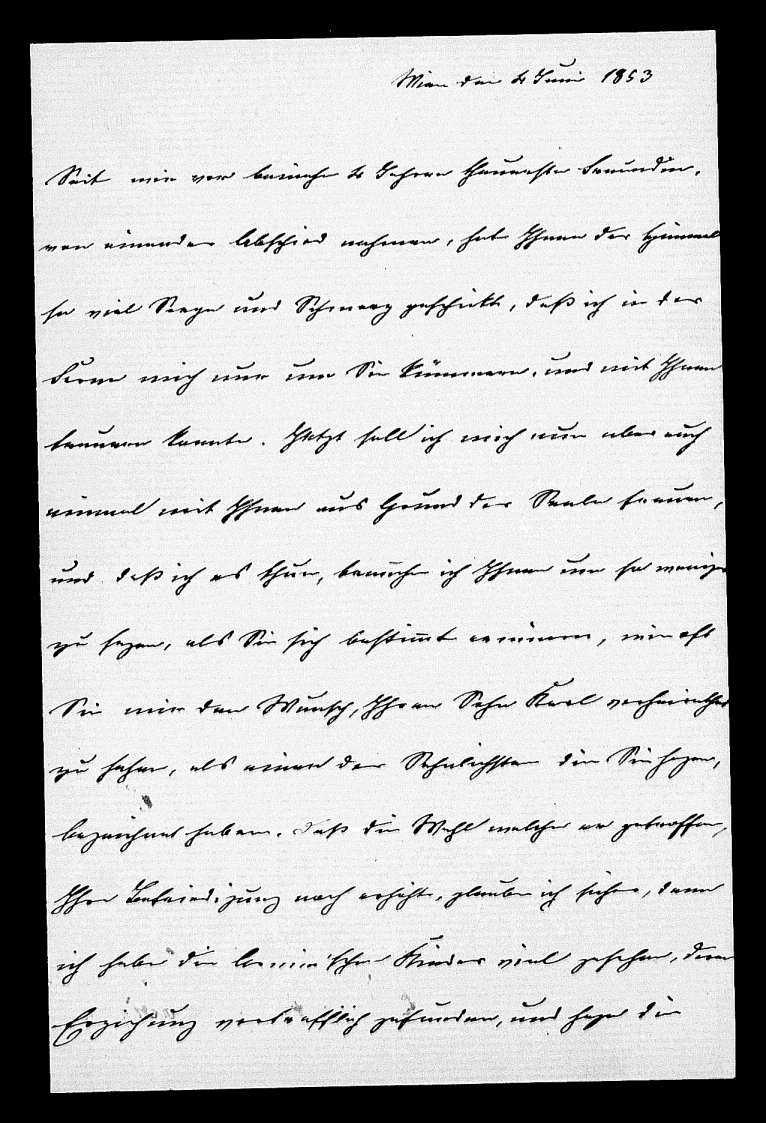 Wien den 4 Juni 1853
Seit wir vor beinahe 4 Jahren theuerste Freundin,
von einander Abschied nahmen, hat Ihnen der Himmel
so viel Sorge und Schmerz geschickt, daß ich in der
Ferne mich nur um Sie kümmern, und mit Ihnen
trauern konnte. Jetzt soll ich mich nun aber auch
einmal mit Ihnen aus Grund der Seele freuen,
und daß ich es thue, brauche ich Ihnen um so weniger
zu sagen, als Sie sich bestimmt erinnern, wie oft
Sie mir den Wunsch, Ihren Sohn Karl verheirathet
zu sehen, als einen der Sehnlichsten die Sie hegen,
bezeichnet haben. Daß die Wahl welche er getroffen,
Ihre Befriedigung noch erhöht, glaube ich sicher, denn
ich habe die Kinder viel gesehen, deren
Erziehung vortrefflich gefunden, und hege die